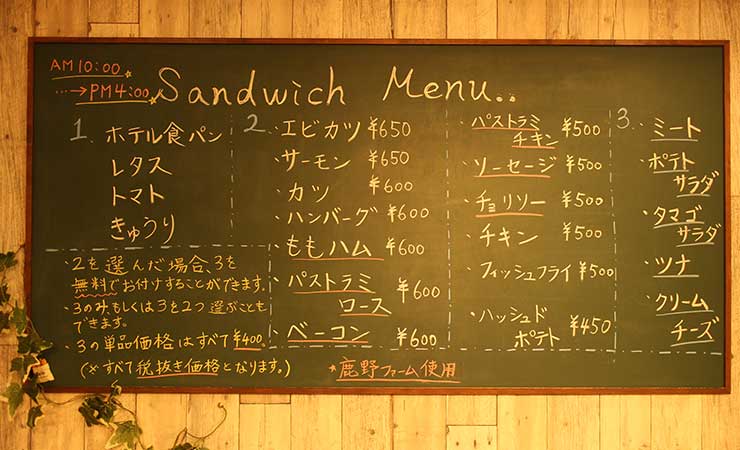 AM10:00
…→PM4:00
Sandwich Menu..
1.
ホテル食パン
レタス
トマト
きゅうり
2.
・エビカツ ¥650
・サーモン ¥650
・カツ ¥600
・ハンバーグ ¥600
・ももハム ¥600
・パストラミ
ロース ¥600
・ベーコン ¥600
・パストラミ
チキン ¥500
・ソーセージ ¥500
・チョリソー ¥500
・チキン ¥500
・フィッシュフライ ¥500
・ハッシュド
ポテト ¥450
3.
・ミート
・ポテト
サラダ
・タマゴ
サラダ
・ツナ
・クリーム
チーズ
・2を選んだ場合、3を
無料でお付けすることができます。
・3のみもしくは3を2つ選ぶことも
できます。
・3の単品価格はすべて¥400
(※すべて税抜き価格となります。)
*鹿野ファーム使用